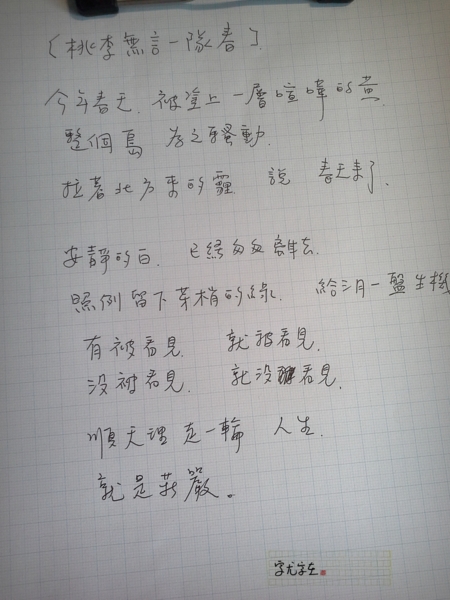 ［桃李無言一隊春］
今年春天. 被塗上一層喧嘩的黃.
整個島 為之騷動.
拉著北方來的霾. 說 春天來了.
安靜的白. 已經匆匆離去.
照例留下芽梢的綠. 給三月一盤生機
有被看見. 就被看見.
沒被看見. 就沒被看見.
順天理走一輪 人生.
就是莊嚴。